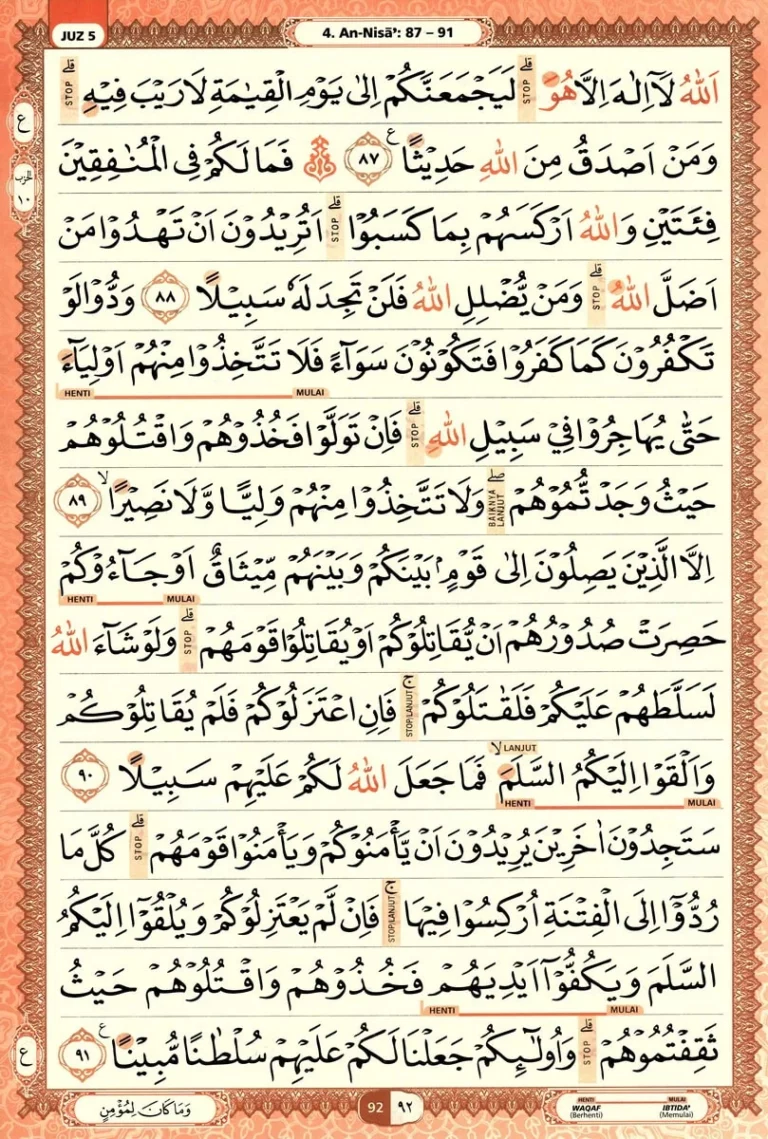 JUZ 5
4. An-Nisā': 87 – 91
اَللّٰهُ لَآ اِلٰهَ اِلَّا هُوَۗ لَيَجْمَعَنَّكُمْ اِلٰى يَوْمِ الْقِيٰمَةِ لَا رَيْبَ فِيْهِۗ
وَمَنْ اَصْدَقُ مِنَ اللّٰهِ حَدِيْثًا ࣖ ٨٧ ۞ فَمَا لَكُمْ فِى الْمُنٰفِقِيْنَ
فِئَتَيْنِ وَاللّٰهُ اَرْكَسَهُمْ بِمَا كَسَبُوْاۗ اَتُرِيْدُوْنَ اَنْ تَهْدُوْا مَنْ
اَضَلَّ اللّٰهُۗ وَمَنْ يُّضْلِلِ اللّٰهُ فَلَنْ تَجِدَ لَهٗ سَبِيْلًا ٨٨ وَدُّوْا لَوْ
تَكْفُرُوْنَ كَمَا كَفَرُوْا فَتَكُوْنُوْنَ سَوَاۤءً فَلَا تَتَّخِذُوْا مِنْهُمْ اَوْلِيَاۤءَ
HENTI MULAI
حَتّٰى يُهَاجِرُوْا فِيْ سَبِيْلِ اللّٰهِۗ فَاِنْ تَوَلَّوْا فَخُذُوْهُمْ وَاقْتُلُوْهُمْ
حَيْثُ وَجَدْتُّمُوْهُمْۖ وَلَا تَتَّخِذُوْا مِنْهُمْ وَلِيًّا وَّلَا نَصِيْرًاۙ ٨٩
اِلَّا الَّذِيْنَ يَصِلُوْنَ اِلٰى قَوْمٍۢ بَيْنَكُمْ وَبَيْنَهُمْ مِّيْثَاقٌ اَوْ جَاۤءُوْكُمْ
HENTI MULAI
حَصِرَتْ صُدُوْرُهُمْ اَنْ يُّقَاتِلُوْكُمْ اَوْ يُقَاتِلُوْا قَوْمَهُمْۗ وَلَوْ شَاۤءَ اللّٰهُ
لَسَلَّطَهُمْ عَلَيْكُمْ فَلَقٰتَلُوْكُمْۚ فَاِنِ اعْتَزَلُوْكُمْ فَلَمْ يُقَاتِلُوْكُمْ
LANJUT
وَاَلْقَوْا اِلَيْكُمُ السَّلَمَۙ فَمَا جَعَلَ اللّٰهُ لَكُمْ عَلَيْهِمْ سَبِيْلًا ٩٠
HENTI MULAI
سَتَجِدُوْنَ اٰخَرِيْنَ يُرِيْدُوْنَ اَنْ يَّأْمَنُوْكُمْ وَيَأْمَنُوْا قَوْمَهُمْۗ كُلَّ مَا
رُدُّوْٓا اِلَى الْفِتْنَةِ اُرْكِسُوْا فِيْهَاۚ فَاِنْ لَّمْ يَعْتَزِلُوْكُمْ وَيُلْقُوْٓا اِلَيْكُمُ
السَّلَمَ وَيَكُفُّوْٓا اَيْدِيَهُمْ فَخُذُوْهُمْ وَاقْتُلُوْهُمْ حَيْثُ
HENTI MULAI
ثَقِفْتُمُوْهُمْۗ وَاُولٰۤىِٕكُمْ جَعَلْنَا لَكُمْ عَلَيْهِمْ سُلْطٰنًا مُّبِيْنًا ࣖ ٩١
STOP
STOP
STOP
STOP
STOP
BAIKNYA LANJUT
STOP
STOP/LANJUT
STOP
STOP/LANJUT
STOP
ع
الحزب
١٠
ع
وَمَا كَانَ لِمُؤْمِنٍ
92 ٩٢
HENTI MULAI
WAQAF IBTIDA'
(Berhenti) (Memulai)